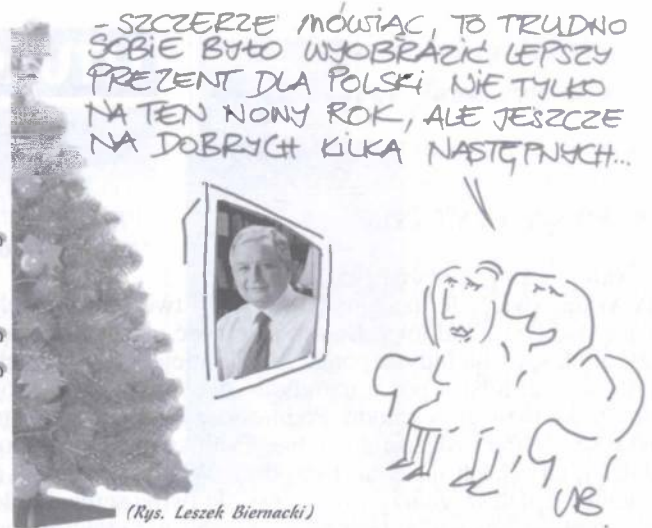 - SZCZERZE MÓWIĄC, TO TRUDNO
SOBIE BYŁO WYOBRAZIĆ LEPSZY
PREZENT DLA POLSKI NIE TYLKO
NA TEN NOWY ROK, ALE JESZCZE
NA DOBRYCH KILKA NASTĘPNYCH...
(Rys. Leszek Biernacki)